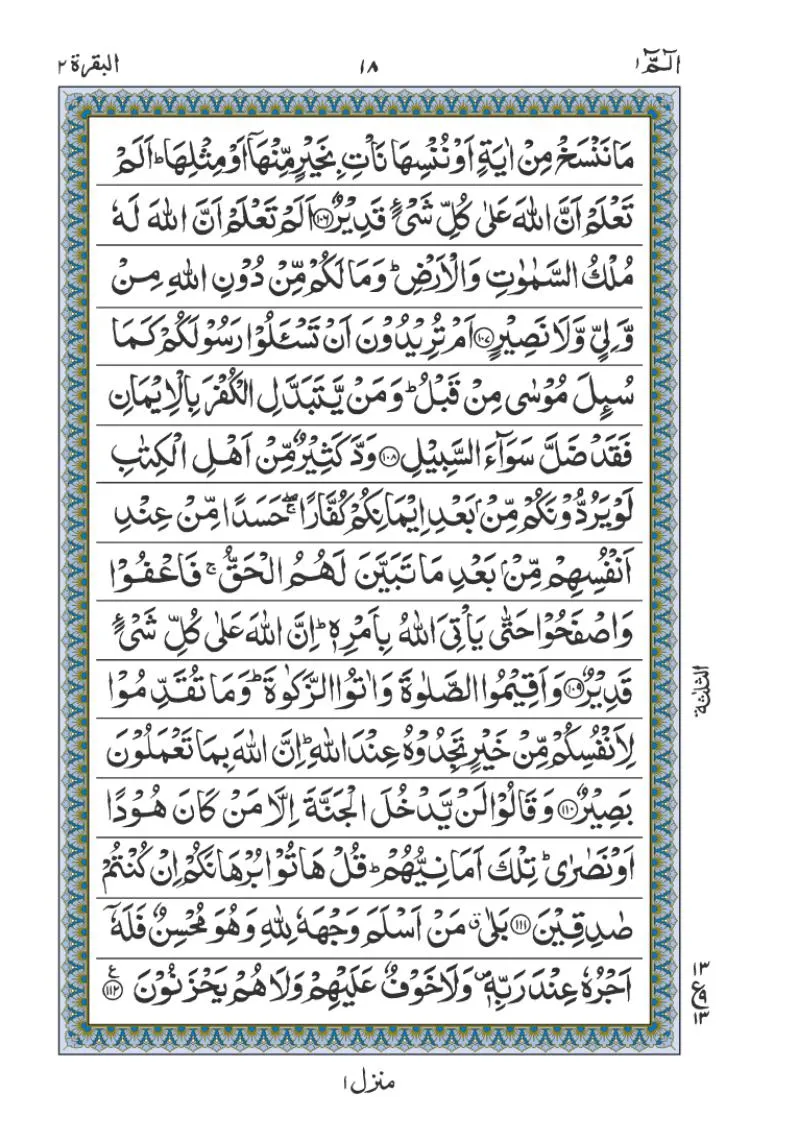 الٓـمّٓ ١
١٨
البقرة ٢
مَا نَنْسَخْ مِنْ اٰيَةٍ اَوْ نُنْسِهَا نَاْتِ بِخَيْرٍ مِّنْهَاۤ اَوْ مِثْلِهَا ؕ اَلَمْ
تَعْلَمْ اَنَّ اللّٰهَ عَلٰى كُلِّ شَیْءٍ قَدِيْرٌ ﴿۱۰۶﴾ اَلَمْ تَعْلَمْ اَنَّ اللّٰهَ لَهٗ
مُلْكُ السَّمٰوٰتِ وَالْاَرْضِ ؕ وَمَا لَكُمْ مِّنْ دُوْنِ اللّٰهِ مِنْ
وَّلِیٍّ وَّلَا نَصِيْرٍ ﴿۱۰۷﴾ اَمْ تُرِيْدُوْنَ اَنْ تَسْـَٔلُوْا رَسُوْلَكُمْ كَمَا
سُىِٕلَ مُوْسٰى مِنْ قَبْلُ ؕ وَمَنْ يَّتَبَدَّلِ الْكُفْرَ بِالْاِيْمَانِ
فَقَدْ ضَلَّ سَوَآءَ السَّبِيْلِ ﴿۱۰۸﴾ وَدَّ كَثِيْرٌ مِّنْ اَهْلِ الْكِتٰبِ
لَوْ يَرُدُّوْنَكُمْ مِّنْۢ بَعْدِ اِيْمَانِكُمْ كُفَّارًا ۖۚ حَسَدًا مِّنْ عِنْدِ
اَنْفُسِهِمْ مِّنْۢ بَعْدِ مَا تَبَيَّنَ لَهُمُ الْحَقُّ ۚ فَاعْفُوْا
وَاصْفَحُوْا حَتّٰى يَاْتِیَ اللّٰهُ بِاَمْرِهٖ ؕ اِنَّ اللّٰهَ عَلٰى كُلِّ شَیْءٍ
قَدِيْرٌ ﴿۱۰۹﴾ وَاَقِيْمُوا الصَّلٰوةَ وَاٰتُوا الزَّكٰوةَ ؕ وَمَا تُقَدِّمُوْا
لِاَنْفُسِكُمْ مِّنْ خَيْرٍ تَجِدُوْهُ عِنْدَ اللّٰهِ ؕ اِنَّ اللّٰهَ بِمَا تَعْمَلُوْنَ
بَصِيْرٌ ﴿۱۱۰﴾ وَقَالُوْا لَنْ يَّدْخُلَ الْجَنَّةَ اِلَّا مَنْ كَانَ هُوْدًا
اَوْ نَصٰرٰى ؕ تِلْكَ اَمَانِيُّهُمْ ؕ قُلْ هَاتُوْا بُرْهَانَكُمْ اِنْ كُنْتُمْ
صٰدِقِيْنَ ﴿۱۱۱﴾ بَلٰى ۗ مَنْ اَسْلَمَ وَجْهَهٗ لِلّٰهِ وَهُوَ مُحْسِنٌ فَلَهٗۤ
اَجْرُهٗ عِنْدَ رَبِّهٖ ۪ وَلَا خَوْفٌ عَلَيْهِمْ وَلَا هُمْ يَحْزَنُوْنَ ﴿۱۱۲﴾ ع
الثلثة
١٣
ع ٩
١٣
منزل ١